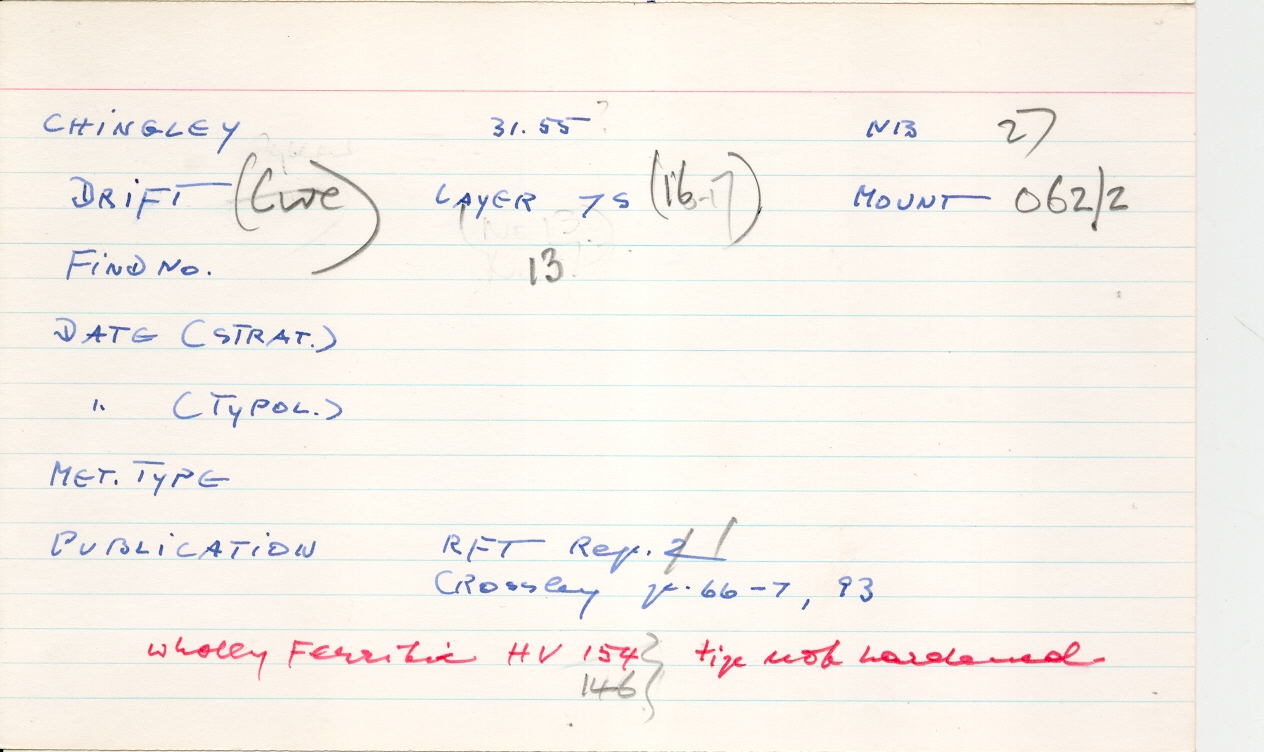 CHINGLEY 31.55 ? NB 27
DRIFT LAYER 7S (16-17) MOUNT 062/2
FIND No. 13
DATE (STRAT.)
" (TYPOL.)
MET. TYPE
PUBLICATION RFT Rep. 1
Crossley p. 66-7, 93
wholly Ferritic HV 154 } tip not hardened
146